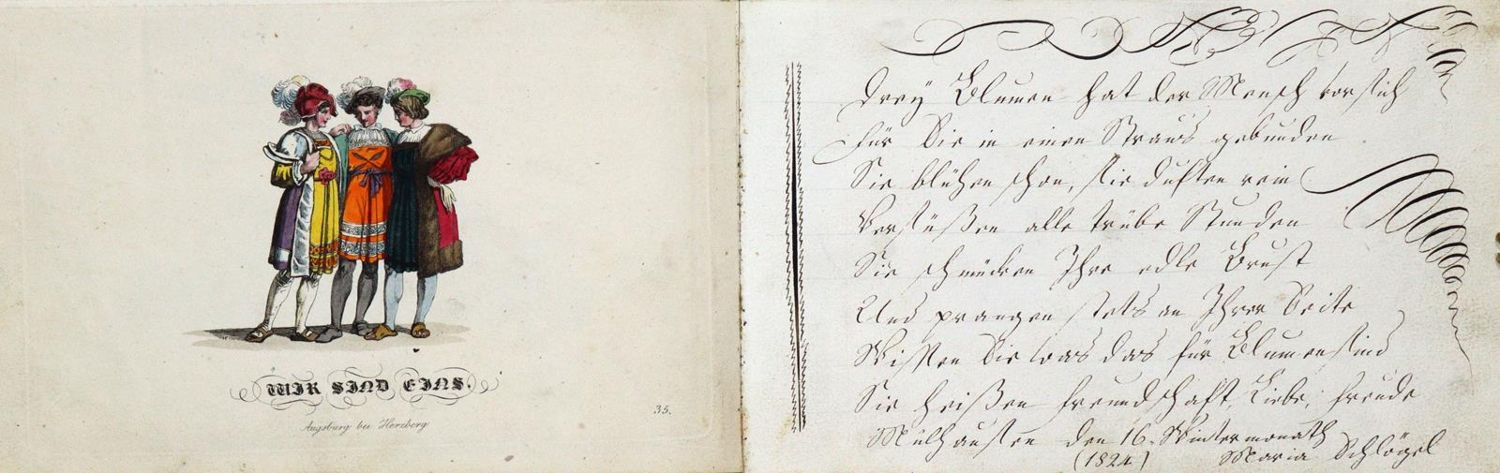 WIR SIND EINS.
Augsburg bei Herzberg
35.
Drey Blumen hat der Mensch vor sich
Für Sie in einen Straus gebunden
Sie blühen schon, sie duften rein
Versüßen alle trübe Stunden
Sie schmücken Ihre edle Brust
Und prangen stets an Ihrer Seite
Wissen Sie was das für Blumen sind
Sie heißen Freundschaft, Liebe, Freude
Mulhausen den 16. Wintermonath
(1824) Maria Schlögel